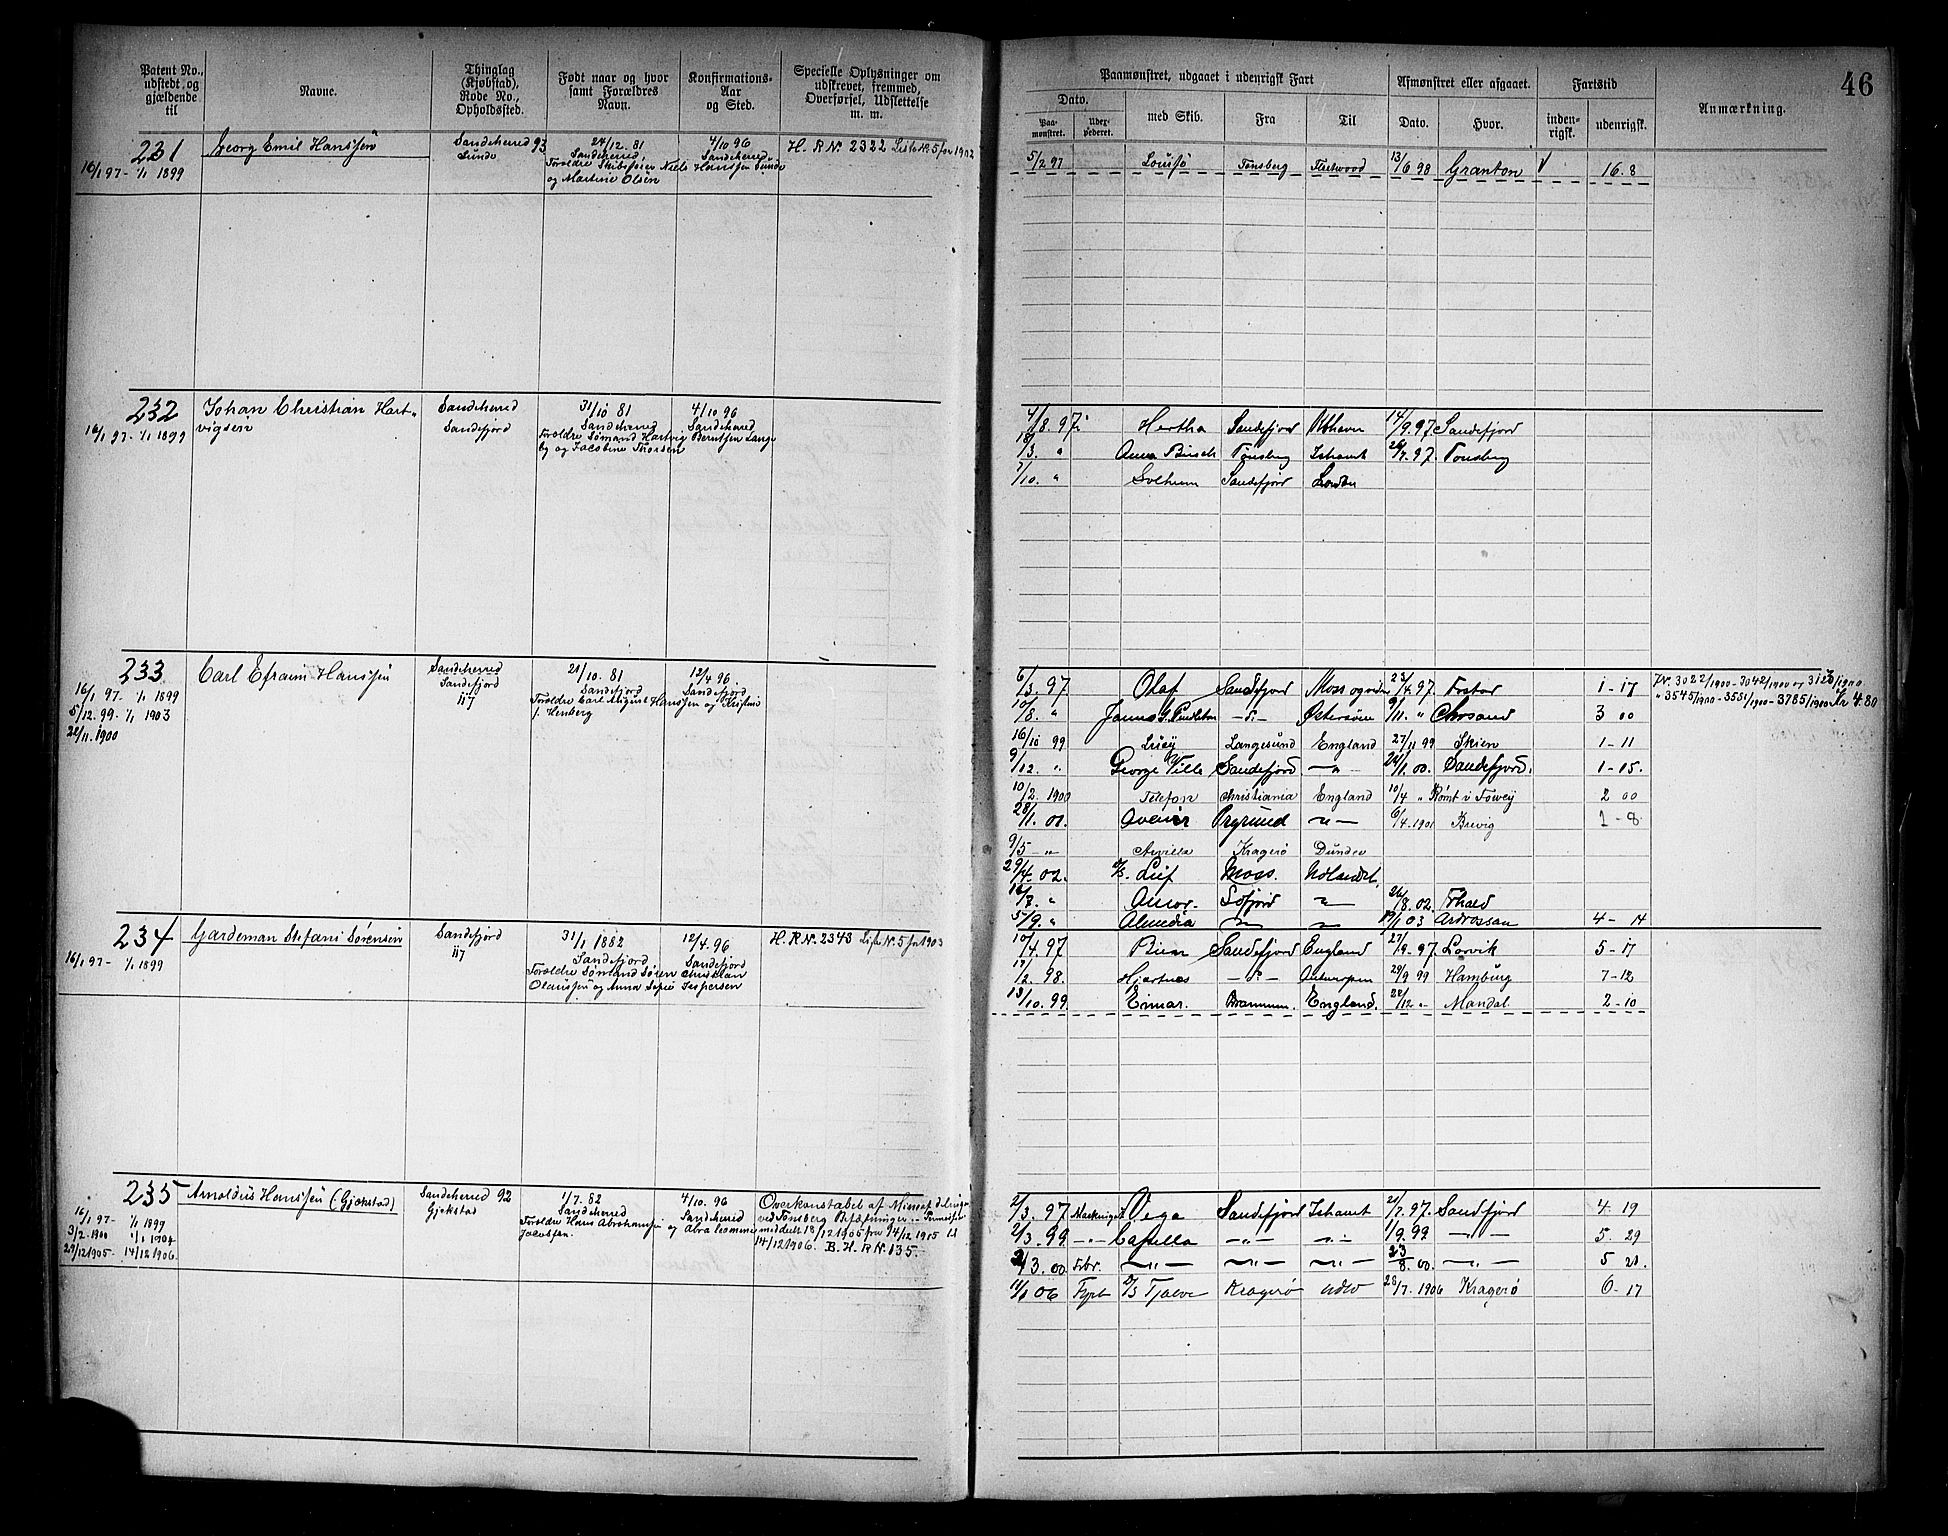 46
Patent No., udstedt og gjældende til
Navne.
Thinglag (Kjøbstad), Rode No., Opholdssted.
Født naar og hvor samt Forældres Navn.
Konfirmations-Aar og Sted.
Specielle Oplysninger om udskrevet, fremmed, Overførsel, Udslettelse m. m.
Paamønstret, udgaaet i udenrigsk Fart
Afmønstret eller afgaaet.
Fartstid
Anmærkning.
Dato.
Paamønstret.
Udexpederet.
med Skib.
Fra
Til
Dato.
Hvor.
indenrigsk.
udenrigsk.
231
16/1 97 - 1/1 1899
Georg Emil Hanssen
Sandeherred 93
Sunde
24/12. 81
Sandeherred
Forældre Skibstøier Niels Hanssen Sunde
og Martine Olsen
4/10 96
Sandeherred
H. R Nº 2322 Liste Nº 5 for 1902
5/2 97 Louisø Tønsberg Fleetwood 13/6 98 Granton V 16. 8
232
16/1 97 - 1/1 1899
Johan Christian Hart-
vigsen
Sandeherred
Sandefjord
31/10 81
Sandeherred
Forældre Sømand Hartvig Berntsen Lange
by og Jacobine Thorsen
4/10 96
Sandeherred
Hertha Sandefjord 14/9. 97. Sandefjord
Tønsberg Ishavet Tønsberg
7/10. " Solheim Sandefjord London
233
16/1 97. - 1/1 1899
5/12. 99. - 1/1 1903
22/11. 1900
Carl Efraim Hanssen
Sandeherred
Sandefjord
117
21/10. 81
Sandefjord
Forældre Carl August Hanssen og Kristine
f. Henberg
12/4 96.
Sandefjord
6/3. 97 Olaf Sandefjord 23/4. 97. 1 - 17
10/8. " James G. Pendleton Østersøen 9/11. " Chrsand 3 00
16/10 99 Langesund England 27/11 99 Skien 1 - 11
9/12. " George Ville Sandefjord 24/1. 00. Sandefjord. 1 - 15.
10/2. 1900 Telefon Christiania England 10/4 " Rømt i Fowey 2 00
28/1. 01. Prsgrund 6/4. 1901 Brevig 1 - 8
9/5 - " Kragerø Dundee
29/4. 02. Leif Moss.
26/8. 02.
5/9. " Almedia 19/1 03 Ardrossan 4 - 14
3022/1900 - 3042/1900 og 3120/1900
" 3545/1900 - 3551/1900 - 3785/1900 Kr 4.80
234
16/1 97 - 1/1 1899
Gardeman Stefani Sørensen
Sandefjord
117
31/1 1882
Sandefjord
Forældre Sømand Søren Christian
Olaussen og Anna Sofie Jespersen
12/4. 96
Sandefjord
H. R Nº. 2343 Liste Nº. 5 for 1903
10/4. 97 Sandefjord England 5 - 17
Hjertnes Antwerpen 29/9 99 Hamburg 7 - 12
13/10. 99 Einar. England. 28/12 " Mandal 2 - 10
235
16/1 97 - 1/1 1899
3/2. 1900 1/1 1904
29/12 1905 14/12 1906.
Arnoldus Hanssen (Gjekstad)
Sandeherred 92
Gjekstad
1/7. 82
Sandeherred
Forældre Hans Abrahamsen
Jacobsen.
4/10. 96
Sandeherred
Overkonstabel af
ved Tønsberg Befæstninger
14/12 1906. B. H. R Nº. 135.
2/3. 97 Vega Sandefjord Ishavet 21/7. 97. Sandfjord 4. 19
2/3. 99 Capella 1/9. 99 5. 29
2/3. 00 23/8. 00. 5 21.
11/1 06 Fyrb D/S Tjalve Kragerø 28/7. 1906 Kragerø 6 - 17